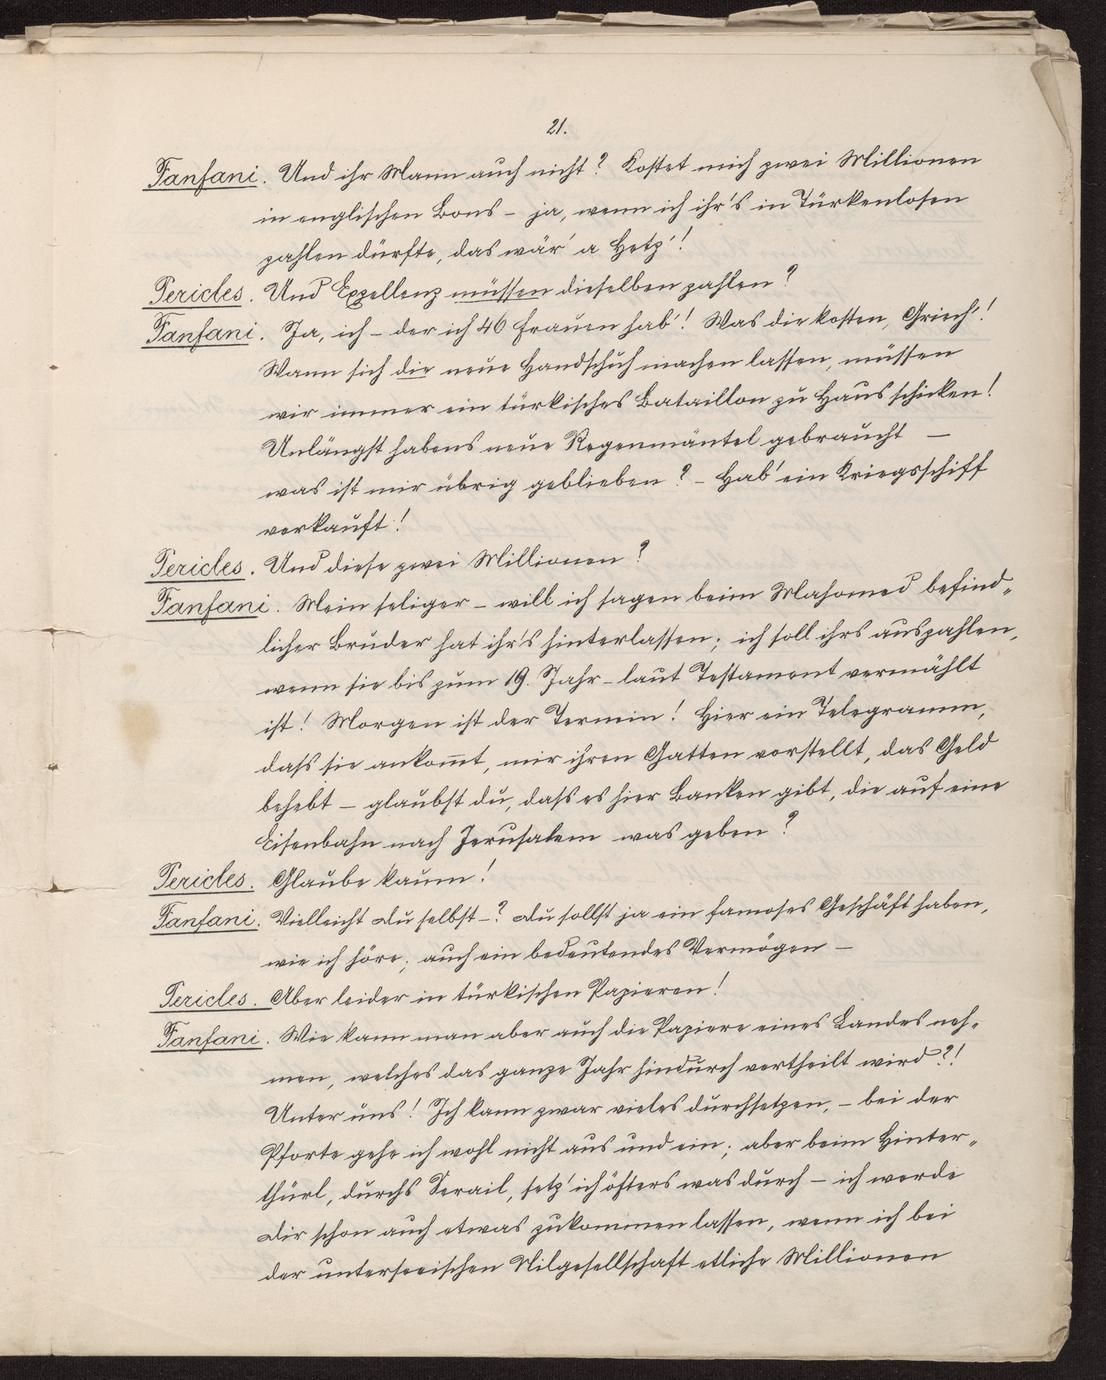 21.
Fanfani. Und ihr Mann auch nicht? Kostet mich zwei Millionen
in englischen Bons – ja, wenn ich ihr's in Türkenlosen
zahlen dürfte, das wär' a Hetz'!
Pericles. Und Exzellenz müssen dieselben zahlen?
Fanfani. Ja, ich – der ich 46 Frauen hab'! Was die kosten, Griech'!
Wann sich die neue Handschuh machen lassen, müssen
wir immer ein türkisches Bataillon zu Haus schicken!
Unlängst habens neue Regenmäntel gebraucht –
was ist mir übrig geblieben? – Hab' ein Kriegsschiff
verkauft!
Pericles. Und diese zwei Millionen?
Fanfani. Mein seliger – will ich sagen beim Mahomed befind-
licher Bruder hat ihr's hinterlassen; ich soll ihrs auszahlen,
wenn sie bis zum 19. Jahr – laut Testament vermählt
ist! Morgen ist der Termin! Hier ein Telegramm,
dass sie ankom̅t, mir ihren Gatten vorstellt, das Geld
behebt – glaubst du, dass es hier Banken gibt, die auf eine
Eisenbahn nach Jerusalem was geben?
Pericles. Glaube kaum!
Fanfani. Vielleicht du selbst –? du sollst ja ein famoses Geschäft haben,
wie ich höre; auch ein bedeutendes Vermögen –
Pericles. Aber leider in türkischen Papieren!
Fanfani. Wie kann man aber auch die Papiere eines Landes neh-
men, welches das ganze Jahr hindurch vertheilt wird?!
Unter uns! Ich kann zwar vieles durchsetzen, – bei der
Pforte gehe ich wohl nicht aus und ein; aber beim Hinter-
thürl, durchs Serail, setz' ich öfters was durch – ich werde
dir schon auch etwas zukommen lassen, wenn ich bei
der unterseeischen Nilgesellschaft etliche Millionen